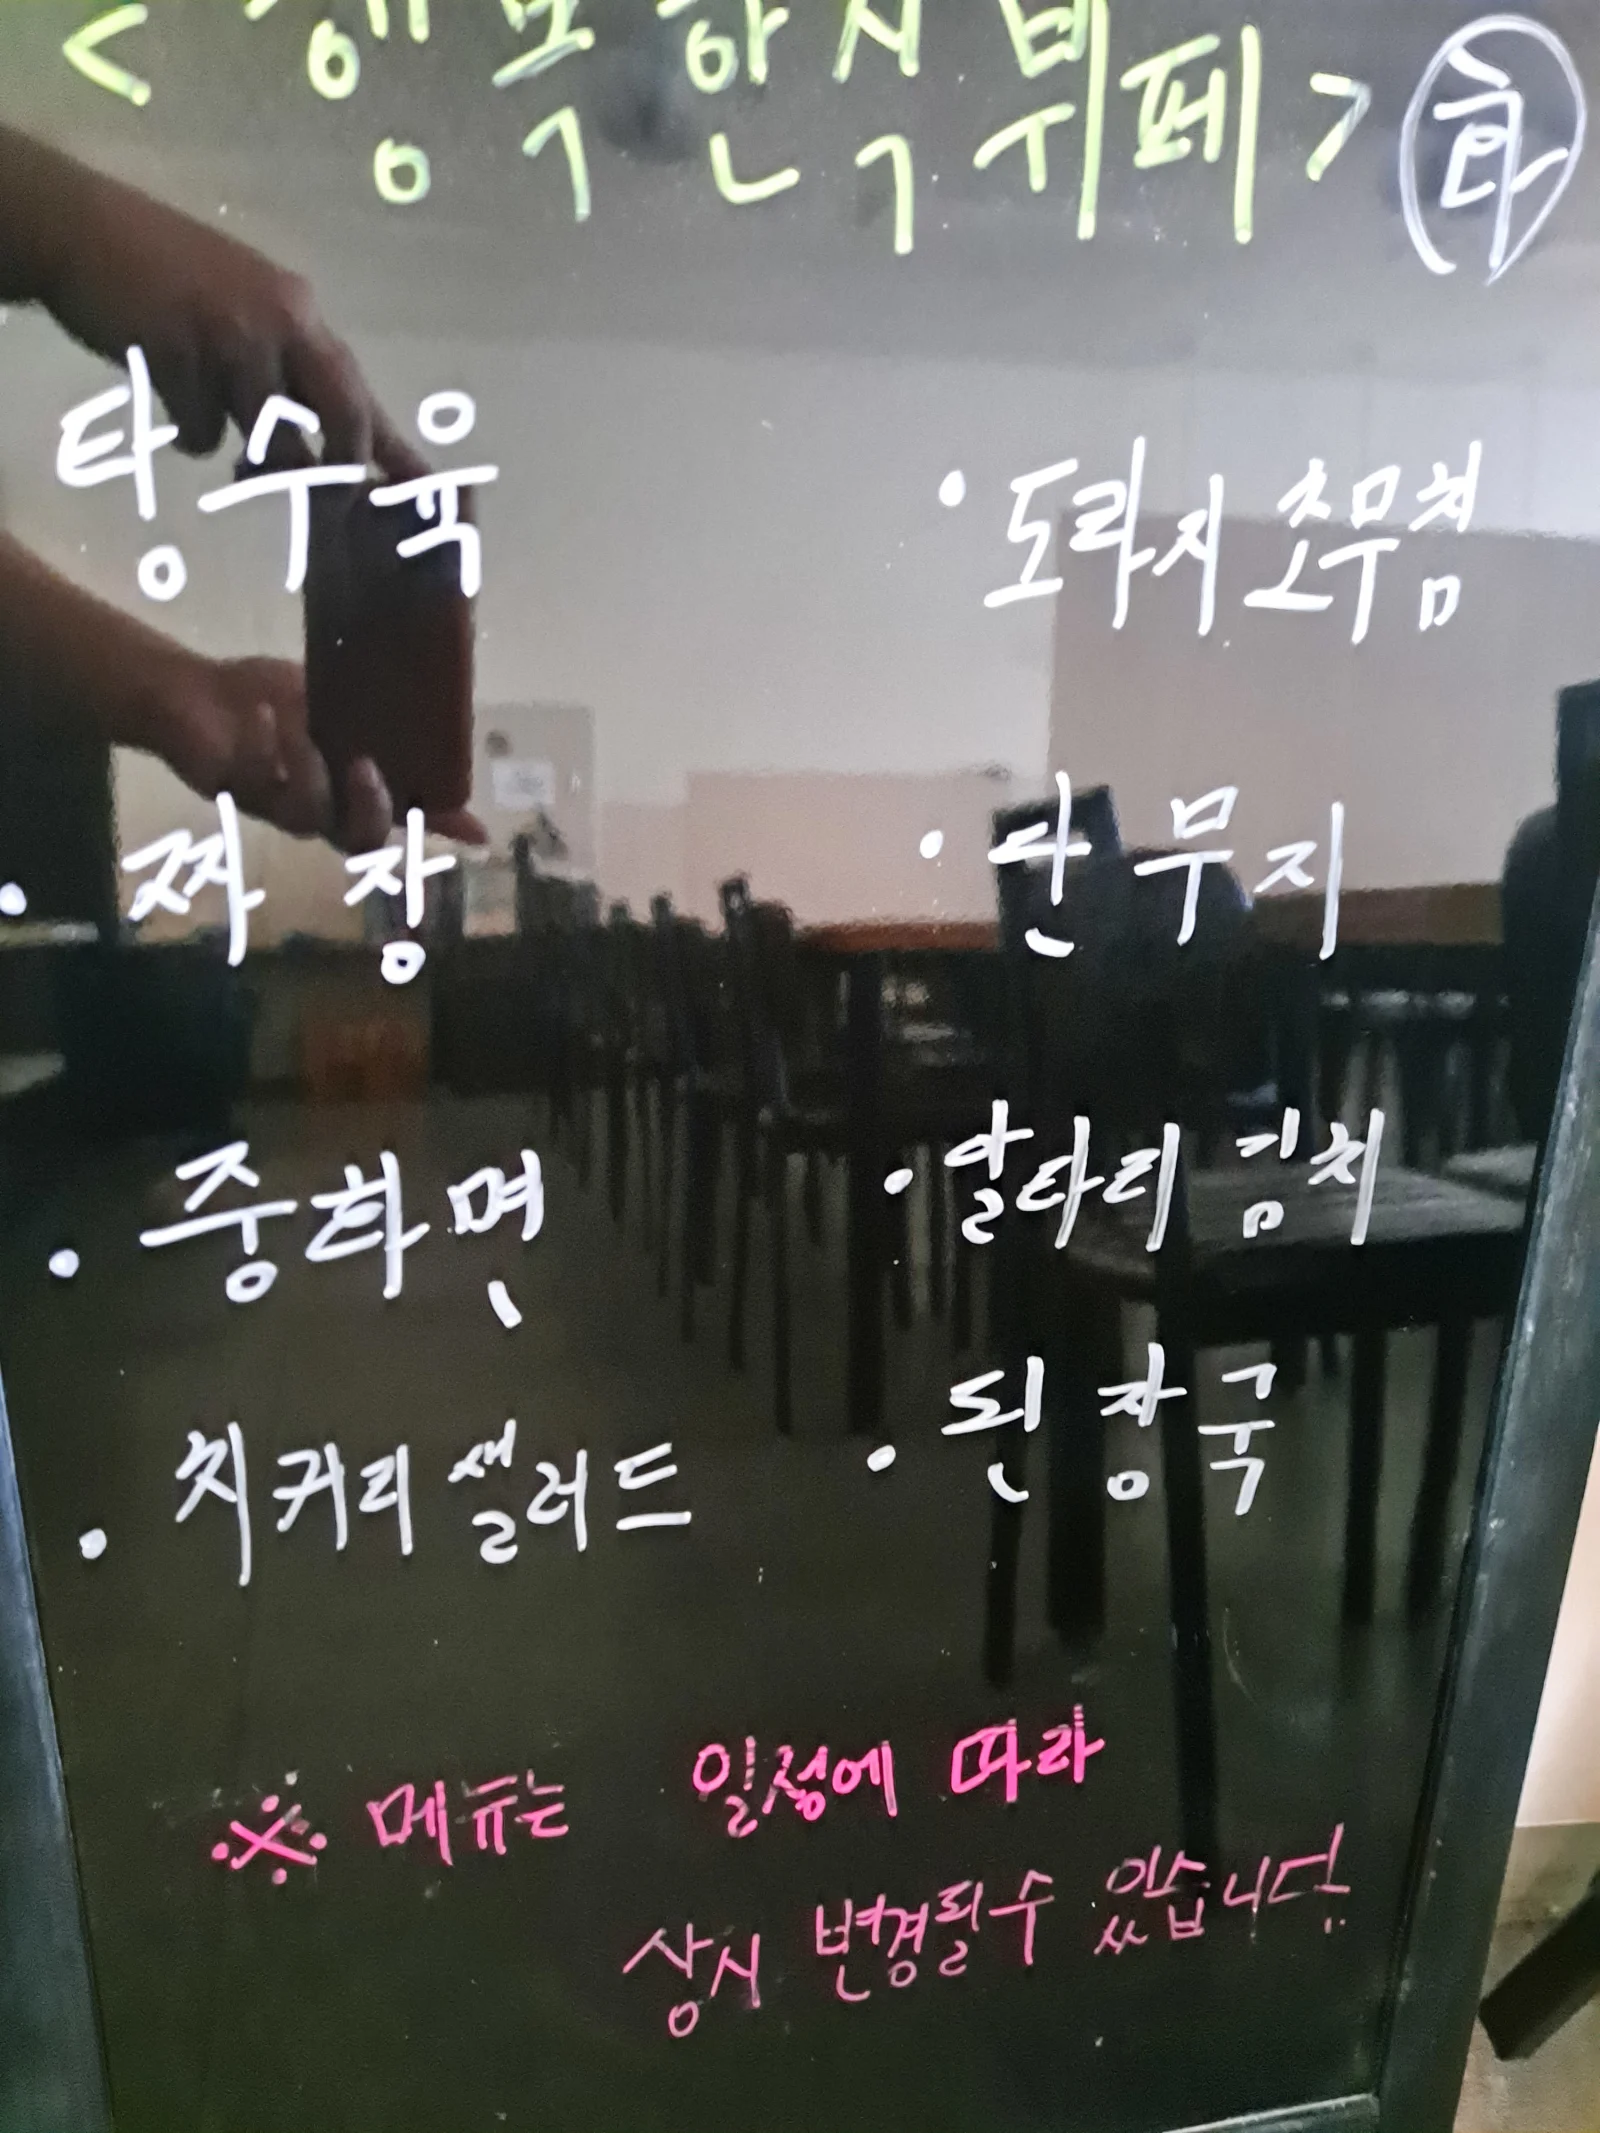 <행복한식뷔페> 화
탕수육
· 짜장
· 중화면
· 치커리샐러드
· 도라지초무침
· 단무지
· 알타리김치
· 된장국
※ 메뉴는 일정에 따라
상시 변경될수 있습니다.